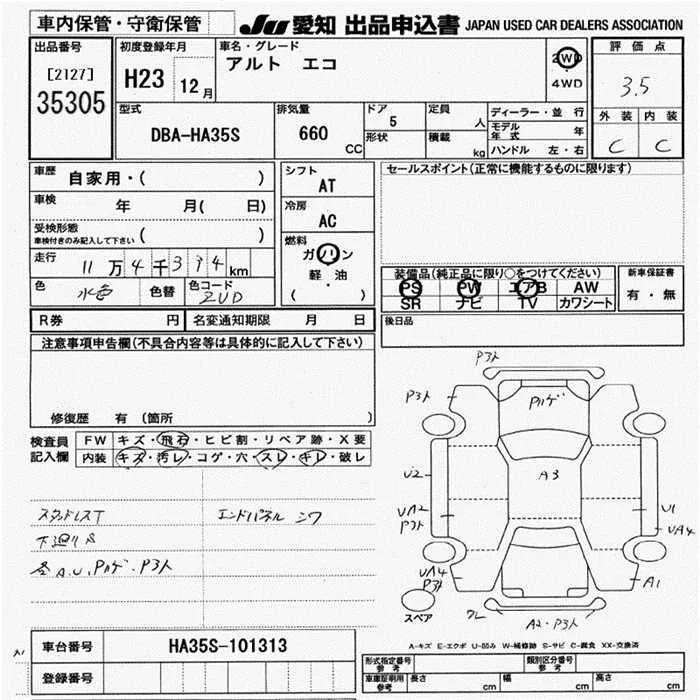 車内保管・守衛保管
JU 愛知 出品申込書 JAPAN USED CAR DEALERS ASSOCIATION
出品番号
[2127]
35305
初度登録年月
H23 12月
車名・グレード
アルト エコ
2WD
4WD
評価点
3.5
外装 内装
C C
型式
DBA-HA35S
排気量
660 CC
ドア 5
形状
定員 人
積載 kg
ディーラー・並行
モデル年式 年
ハンドル 左・右
車歴 自家用・( )
車検 年 月( 日)
受検形態
車検付きのみ記入して下さい ( )
走行 11万4千374km
色 水色 色替 色コード ZUD
シフト
AT
冷房
AC
燃料
ガソリン
軽・油
( )
セールスポイント(正常に機能するものに限ります)
装備品(純正品に限り○をつけてください)
PS PW エアB AW
SR ナビ TV カワシート
新車保証書
有・無
後日品
R券 円 名変通知期限 月 日
注意事項申告欄(不具合内容等は具体的に記入して下さい)
修復歴 有 (箇所 )
検査員記入欄
FW キズ・飛石・ヒビ割・リペア跡・X要
内装 キズ・汚レ・コゲ・穴・スレ・キレ・破レ
スタッドレスT
下廻りS
各A.U.Pハゲ.P3ト
エンドパネル シワ
P3ト
P3ト
Pハゲ
U2
A3
UA2
P3ト
U1
UA4
UA4
P3ト
A1
ワレ
A2・P3ト
スペア
A-キズ E-エクボ U-凹み W-補修跡 S-サビ C-腐食 XX-交換済
車台番号 HA35S-101313
登録番号
形式指定番号
参考
類別区分番号
参考
車庫証明用
参考
長さ cm 幅 cm 高さ cm